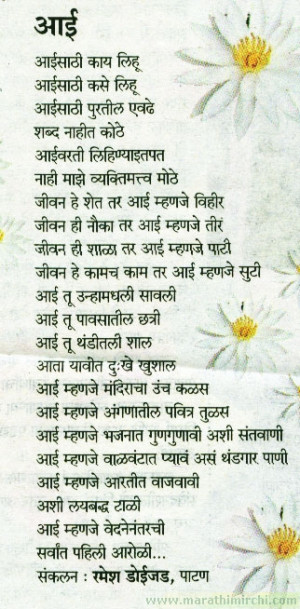 आई
आईसाठी काय लिहू
आईसाठी कसे लिहू
आईसाठी पुरतील एवढे
शब्द नाहीत कोठे
आईवरती लिहिण्याइतपत
नाही माझे व्यक्तिमत्त्व मोठे
जीवन हे शेत तर आई म्हणजे विहीर
जीवन ही नौका तर आई म्हणजे तीरं
जीवन ही शाळा तर आई म्हणजे पाटी
जीवन हे कामच काम तर आई म्हणजे सुटी
आई तू उन्हामधली सावली
आई तू पावसातील छत्री
आई तू थंडीतली शाल
आता यावीत दुःखे खुशाल
आई म्हणजे मंदिराचा उंच कळस
आई म्हणजे अंगणातील पवित्र तुळस
आई म्हणजे भजनात गुणगुणावी अशी संतवाणी
आई म्हणजे वाळवंटात प्यावं असं थंडगार पाणी
आई म्हणजे आरतीत वाजवावी
अशी लयबद्ध टाळी
आई म्हणजे वेदनेनंतरची
सर्वांत पहिली आरोळी...
संकलन : रमेश डोईजड, पाटण
www.marathimirchi.com